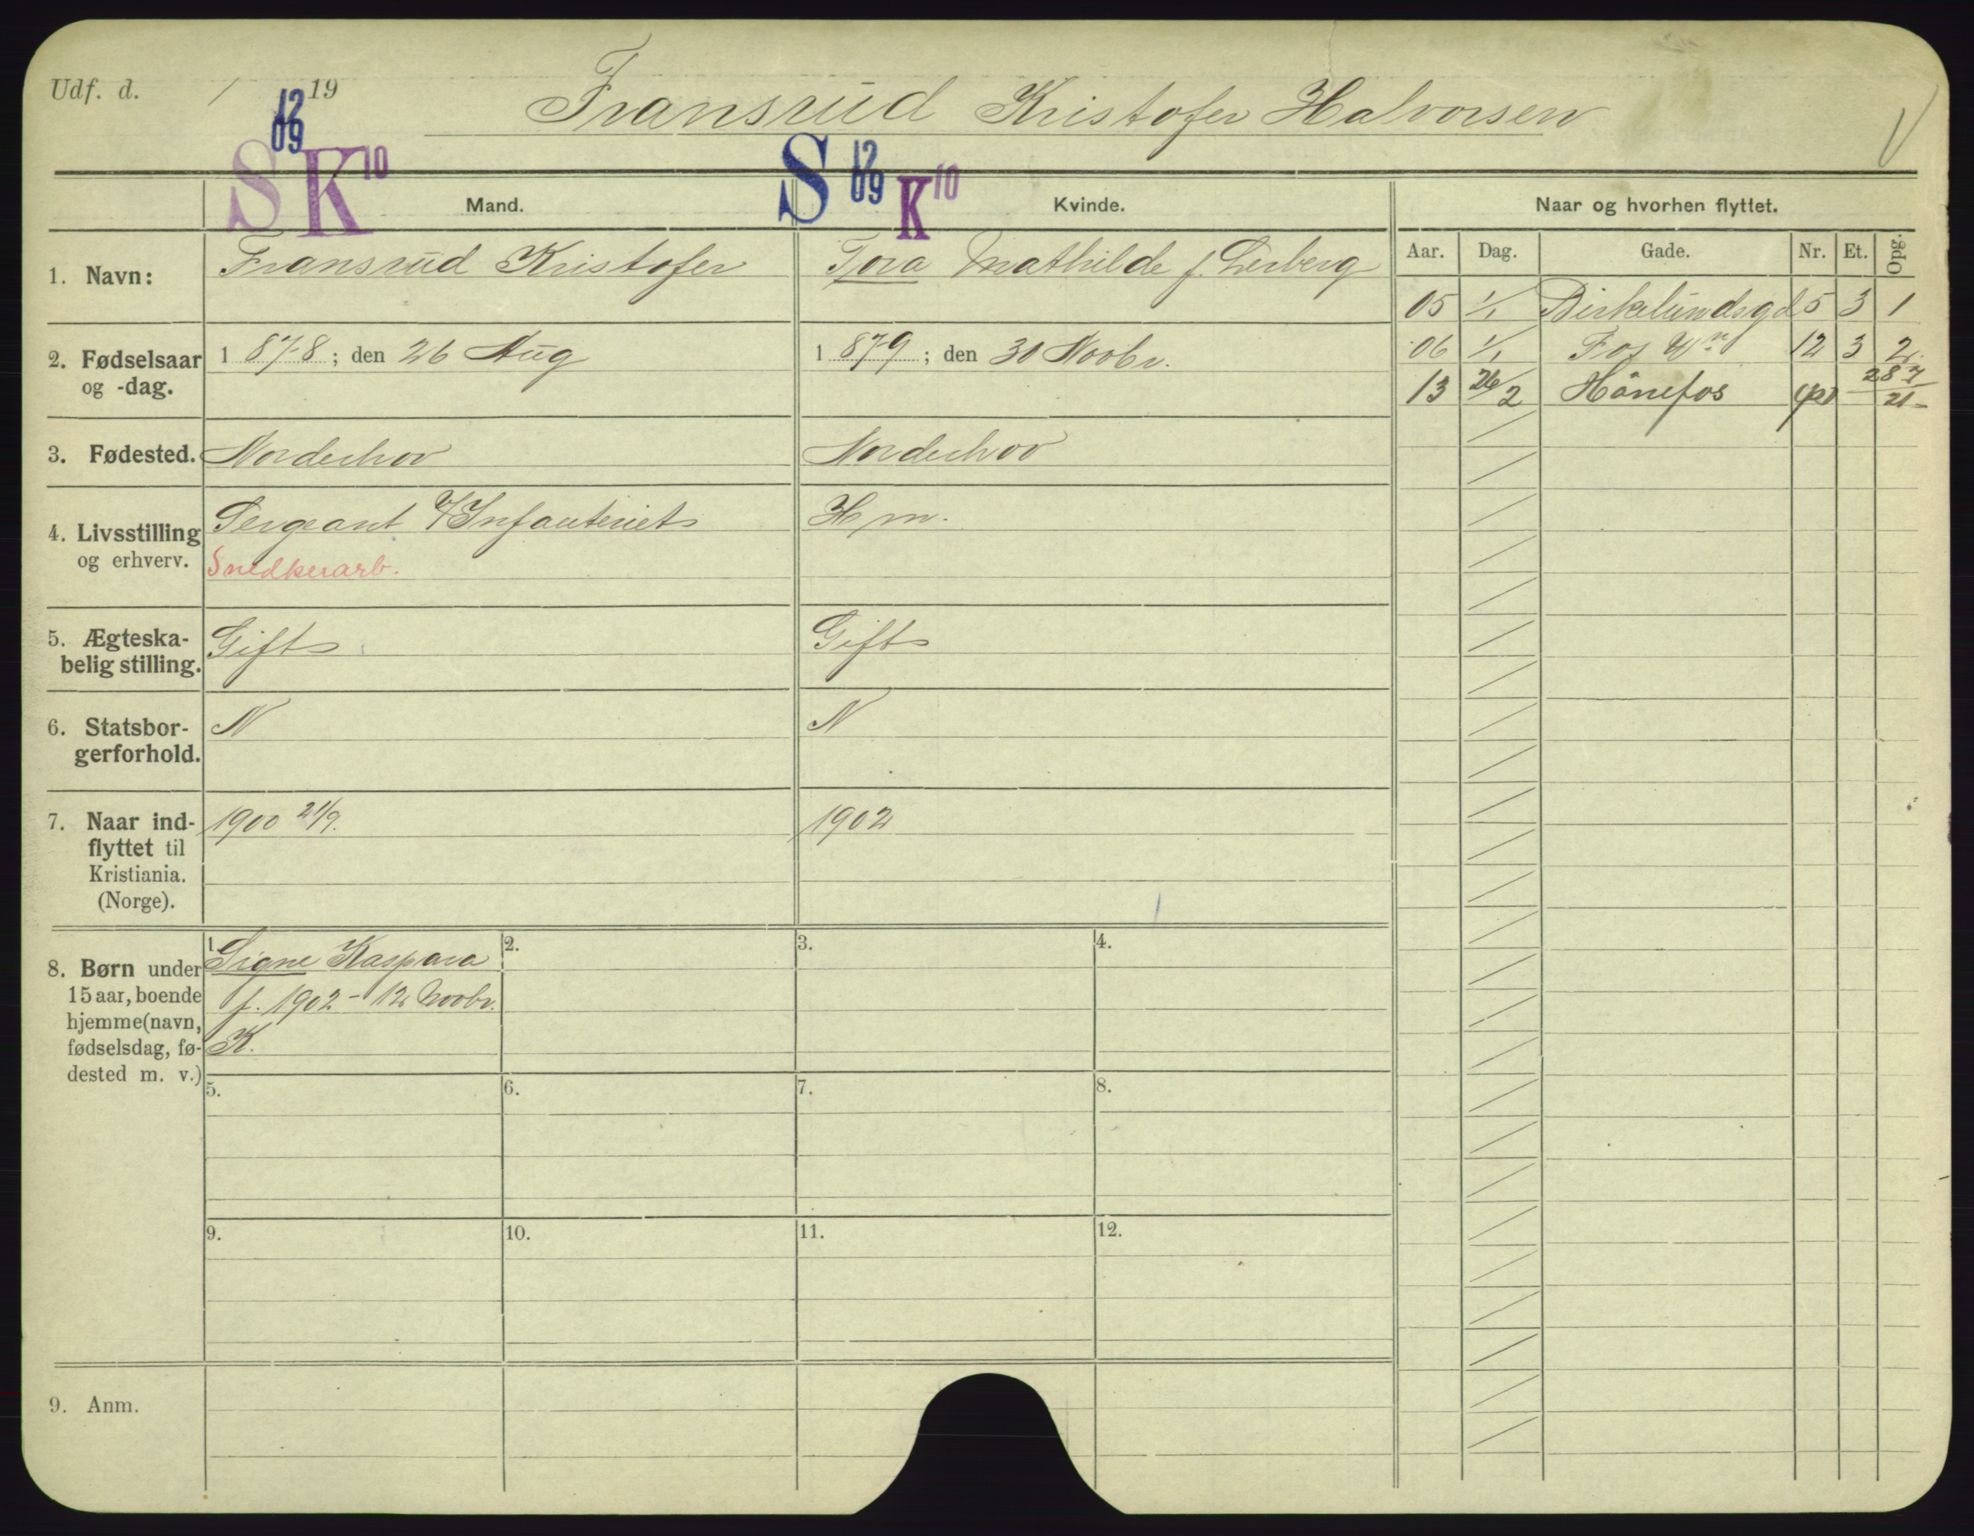 Udf. d. / 19
Fransrud Kristofer Halvorsen
12 09
S K 10
S 12 09 K 10
Mand.
Kvinde.
Naar og hvorhen flyttet.
Aar. Dag. Gade. Nr. Et. Opg.
1. Navn:
Fransrud Kristofer
Tora Mathilde f. Lerberg
05 1/1 Birkelundsgd 5 3 1
06 1/1 Fos 12 3 2.
13 26/2 Hönefos 287/21
2. Fødselsaar
og -dag.
1 878; den 26 Aug
1 879; den 30 Novbr.
3. Fødested.
Norderhov
Norderhov
4. Livsstilling
og erhverv.
Sergeant Infanteriet
Snedkerarb.
Hm.
5. Ægteska-
belig stilling.
Gift
Gift
6. Statsbor-
gerforhold.
N
N
7. Naar ind-
flyttet til
Kristiania.
(Norge).
1900 21/9.
1902
8. Børn under
15 aar, boende
hjemme (navn,
fødselsdag, fø-
dested m. v.)
1. Signe Kaspara
f. 1902 - 12 Novbr.
K.
2.
3.
4.
5.
6.
7.
8.
9.
10.
11.
12.
9. Anm.